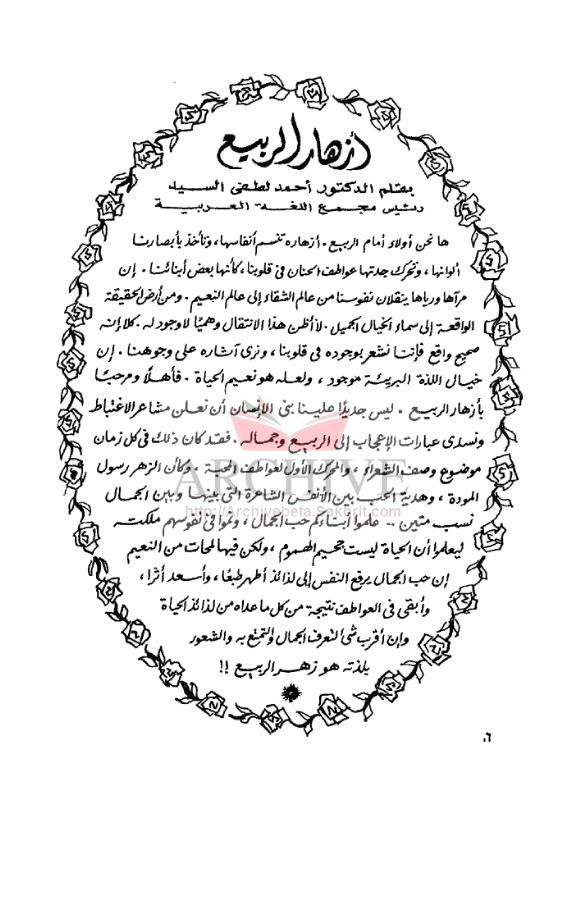 أزهار الربيع
بقلم الدكتور أحمد لطفي السيد
رئيس مجمع اللغة العربية
ها نحن أولاء أمام الربيع. أزهاره تنسم أنفاسها، وتأخذ بأبصارنا
ألوانها، وتحرك جدتها عواطف الحنان في قلوبنا، كأنها بعض أبنائنا. إن
مرآها ورياها ينقلان نفوسنا من عالم الشقاء إلى عالم النعيم. ومن أرض الحقيقة
الواقعة إلى سماء الخيال الجميل. لا أظن هذا الانتقال وهميًا لا وجود له. كلا إنه
صحيح واقع فإننا نشعر بوجوده في قلوبنا، ونرى آثاره على وجوهنا. إن
خيال اللذة البريئة موجود، ولعله هو نعيم الحياة. فأهلاً ومرحبًا
بأزهار الربيع. ليس جديدًا علينا بني الإنسان أن نعلن مشاعر الاغتباط
ونسدى عبارات الإعجاب إلى الربيع وجماله. فقد كان ذلك في كل زمان
موضوع وصف الشعراء، والمحرك الأول لعواطف المحبة. وكأن الزهر رسول
المودة، وهدية الحب بين الأنفس الشاعرة التي بينها وبين الجمال
نسب متين .. علموا أبناءكم حب الجمال، ونموا في نفوسهم ملكته
ليعلموا أن الحياة ليست جحيم الهموم، ولكن فيها لمحات من النعيم
إن حب الجمال يرفع النفس إلى لذائذ أطهر طبعًا، وأسعد أثرًا،
وأبقى في العواطف نتيجة من كل ما عداه من لذائذ الحياة
وإن أقرب شئ لتعرف الجمال والتمتع به والشعور
بلذته هو زهر الربيع !!
ARCHIVE
http://Archivebeta.Sakhrit.com
٦